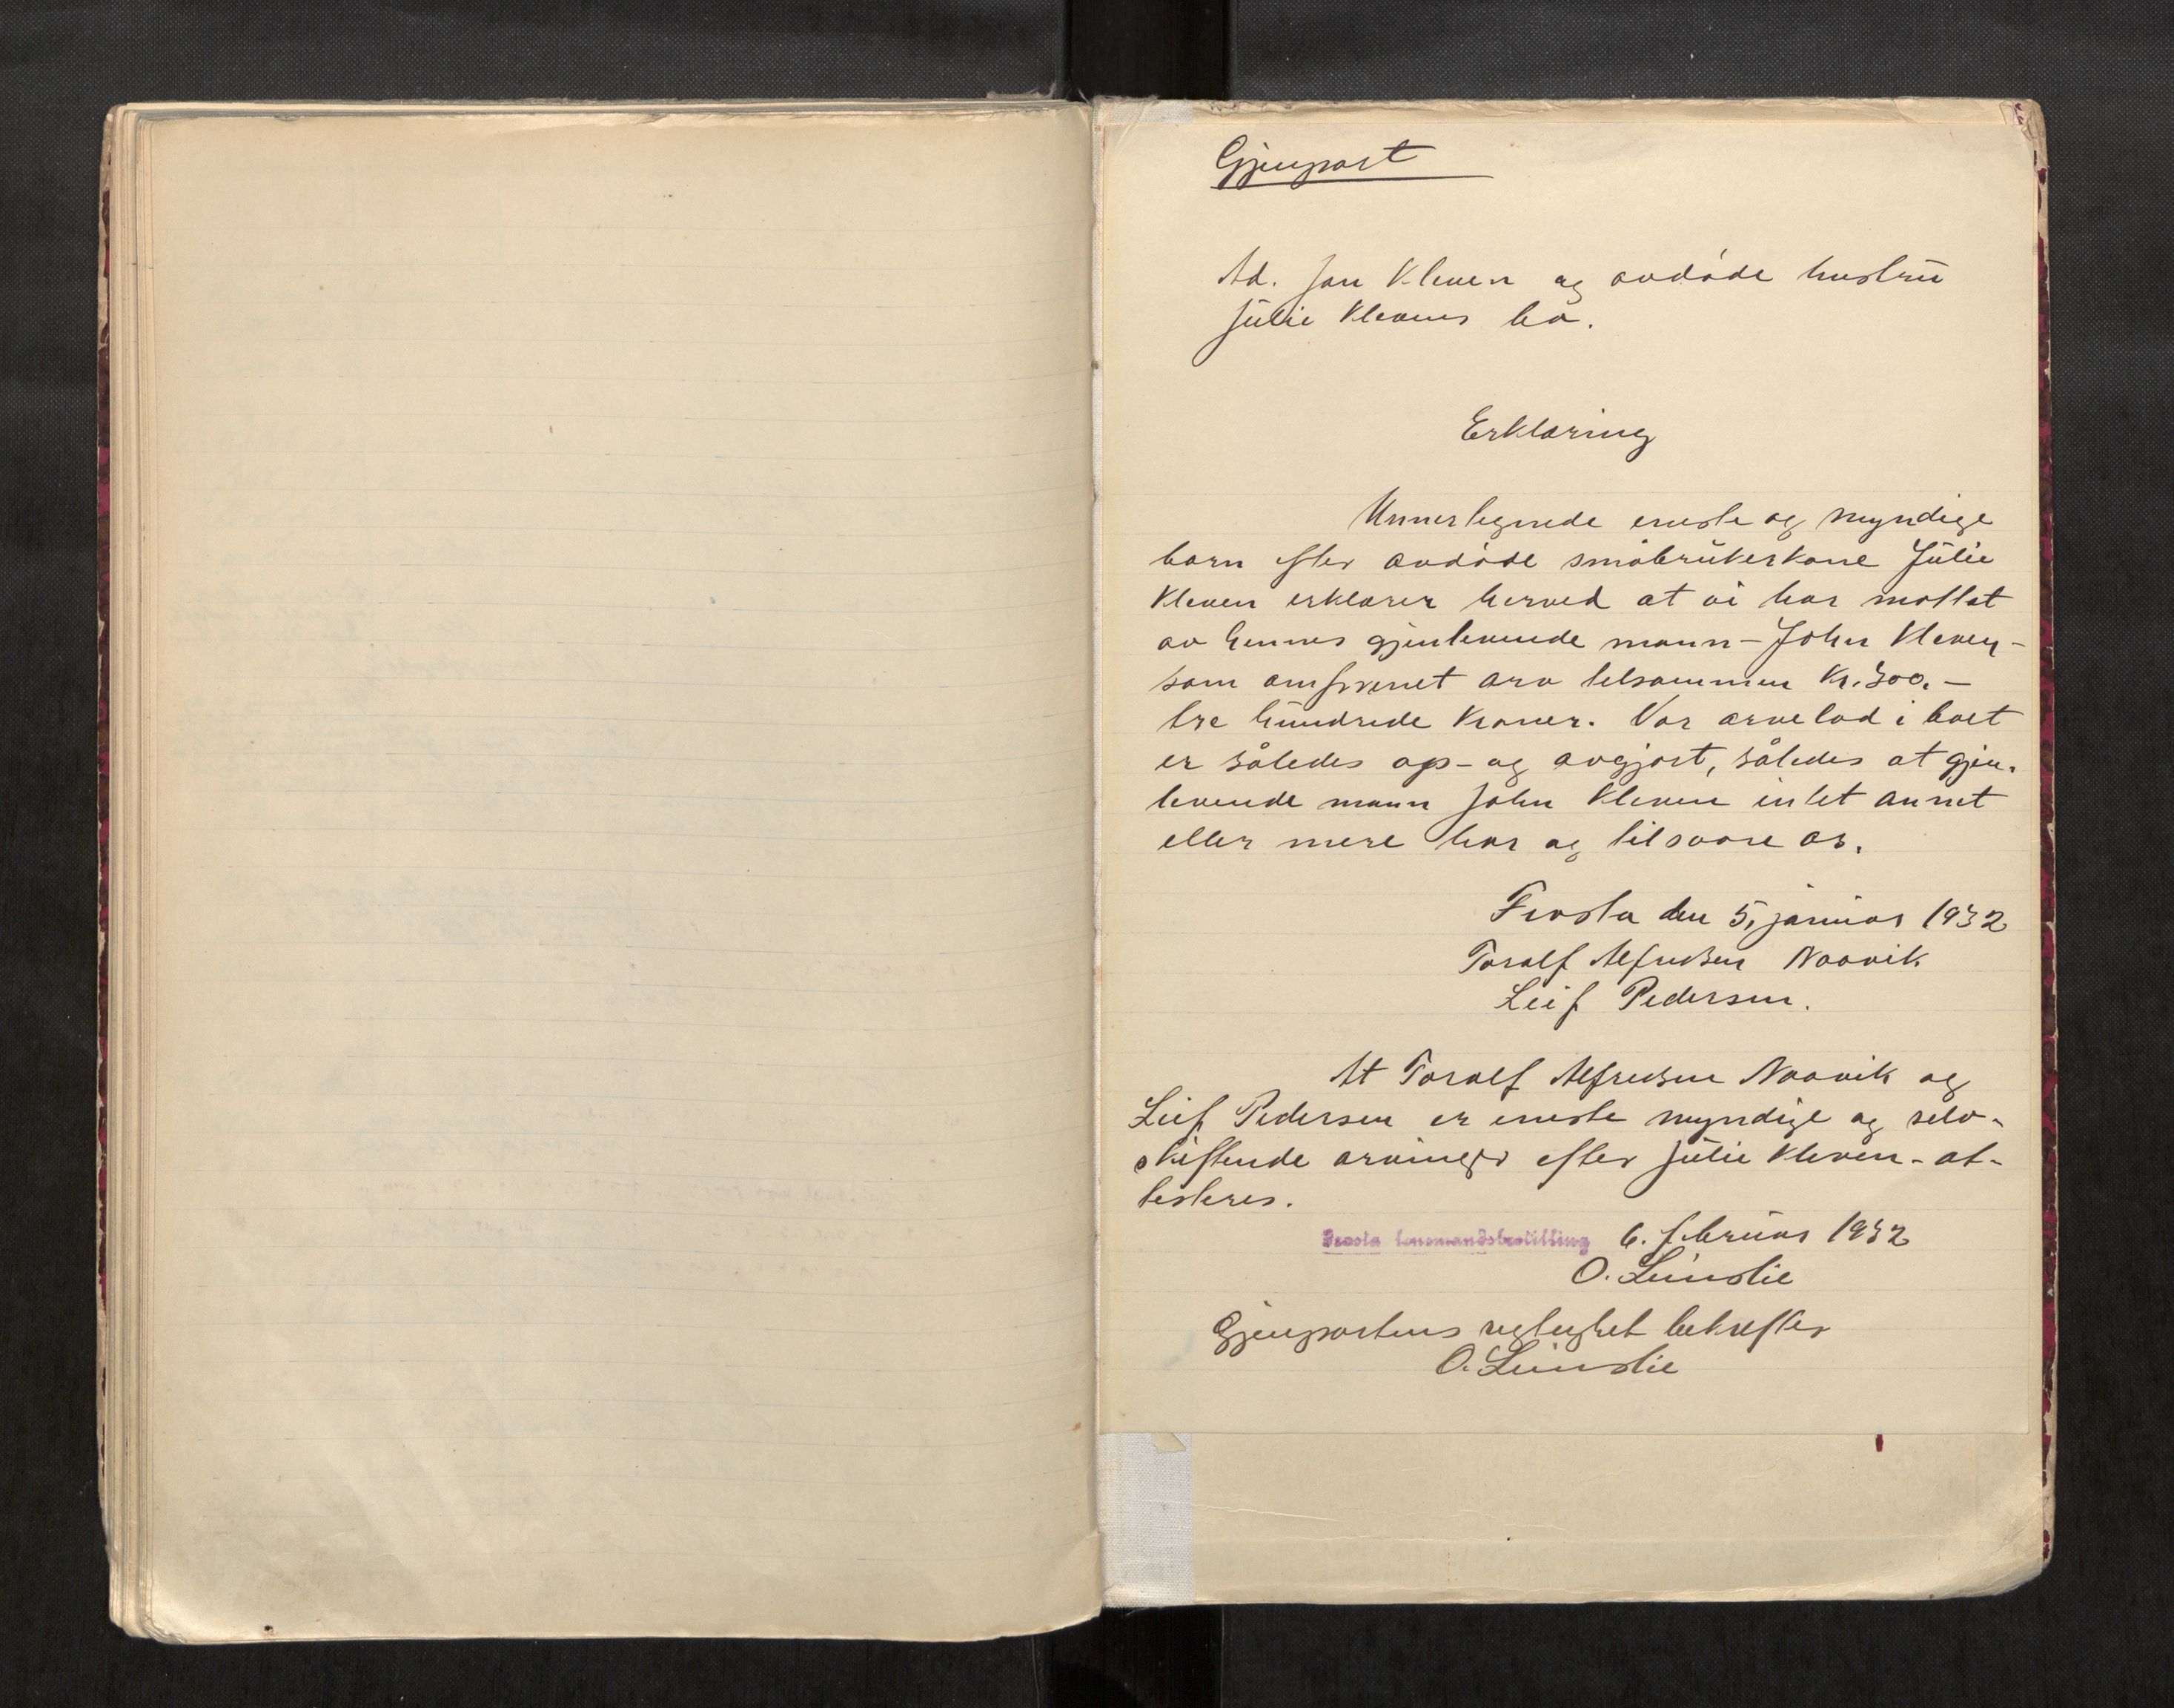 Gjenpart
Ad. Jon Kleven og avdøde hustru
Julie Klevens bo.
Erklæring
Unnertegnede eneste og myndige
barn efter avdøde småbrukerkone Julie
Kleven erklærer herved at vi har mottat
av hennes gjenlevende mann - John Kleven -
som omforenet arv tilsammen Kr. 300. -
tre hundrede Kroner. Vor arvelod i boet
er således op- og avgjort, således at gjen-
levende mann John Kleven intet annet
eller mere har og tilsvare os.
Frosta den 5. januar 1932
Toralf Alfredsen Naavik
Leif Pedersen.
At Toralf Alfredsen Naavik og
Leif Pedersen er eneste myndige og selv-
skiftende arvinger efter Julie Kleven - at-
testeres.
Frosta lensmandsbestilling 6. februar 1932
O. Leinslie
Gjenpartens rigtighet bekrefter
O. Leinslie